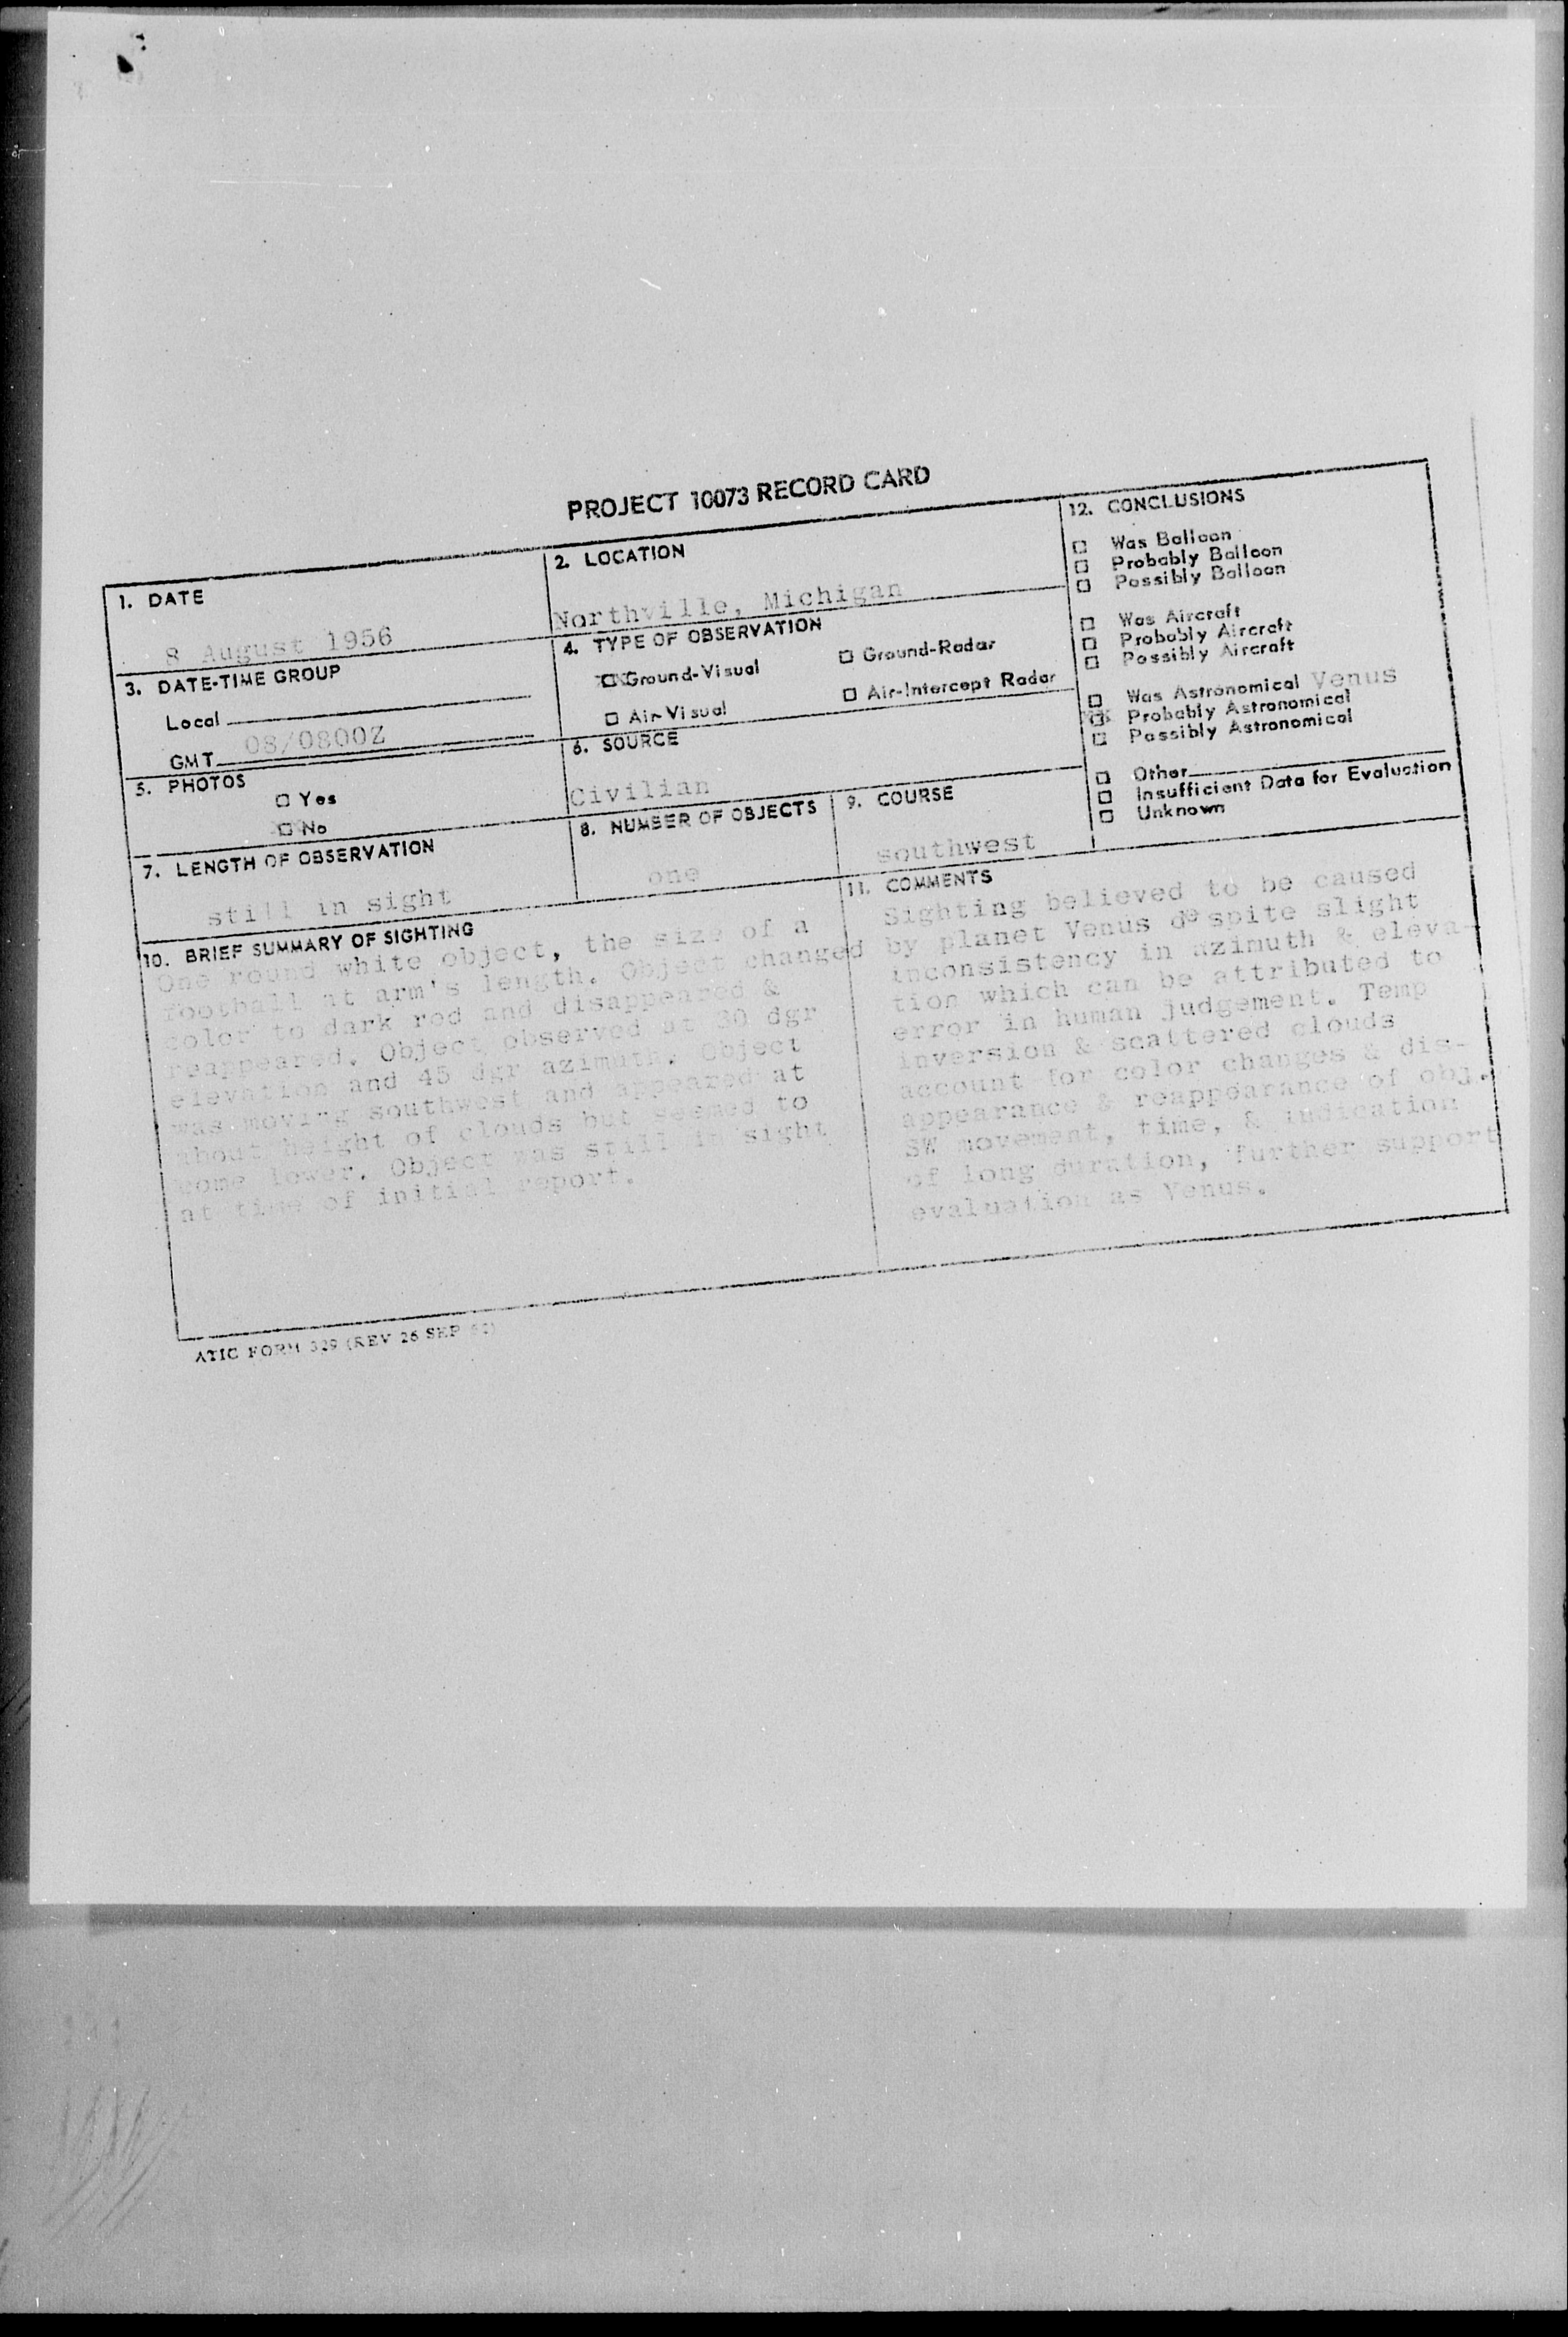 PROJECT 10073 RECORD CARD
1. DATE
8 August 1956
2. LOCATION
Northville, Michigan
3. DATE-TIME GROUP
Local
GMT 08/0800Z
4. TYPE OF OBSERVATION
XX Ground-Visual
Ground-Radar
Air-Visual
Air-Intercept Radar
5. PHOTOS
Yes
No
6. SOURCE
Civilian
7. LENGTH OF OBSERVATION
still in sight
8. NUMBER OF OBJECTS
one
9. COURSE
southwest
10. BRIEF SUMMARY OF SIGHTING
One round white object, the size of a
football at arm's length. Object changed
color to dark red and disappeared &
reappeared. Object observed at 30 dgr
elevation and 45 dgr azimuth. Object
was moving southwest and appeared at
about height of clouds but seemed to
come lower. Object was still in sight
at time of initial report.
11. COMMENTS
Sighting believed to be caused
by planet Venus despite slight
inconsistency in azimuth & eleva-
tion which can be attributed to
error in human judgement. Temp
inversion & scattered clouds
account for color changes & dis-
appearance & reappearance of obj.
SW movement, time, & indication
of long duration, further support
evaluation as Venus.
12. CONCLUSIONS
Was Balloon
Probably Balloon
Possibly Balloon
Was Aircraft
Probably Aircraft
Possibly Aircraft
Was Astronomical Venus
XX Probably Astronomical
Possibly Astronomical
Other
Insufficient Data for Evaluation
Unknown
ATIC FORM 329 (REV 26 SEP 52)